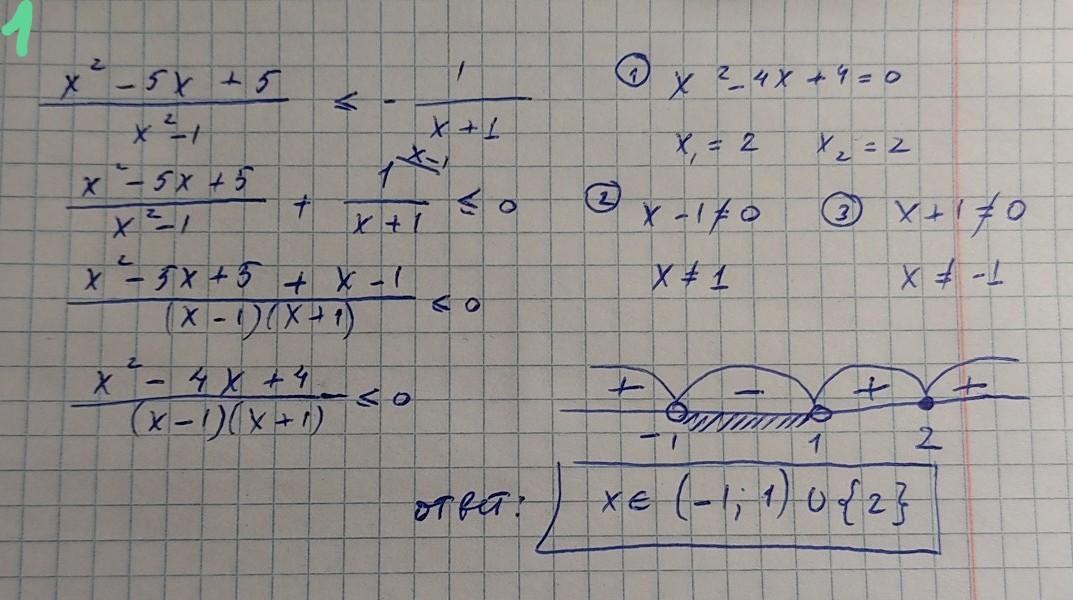 1
(x² - 5x + 5)/(x² - 1) ≤ - 1/(x + 1)
(x² - 5x + 5)/(x² - 1) + 1/(x + 1) ≤ 0 x-1
(x² - 5x + 5 + x - 1)/((x - 1)(x + 1)) ≤ 0
(x² - 4x + 4)/((x - 1)(x + 1)) ≤ 0
① x² - 4x + 4 = 0
x₁ = 2 x₂ = 2
② x - 1 ≠ 0 ③ x + 1 ≠ 0
x ≠ 1 x ≠ -1
+ - + +
-1 1 2
ответ: x ∈ (-1; 1) ∪ {2}